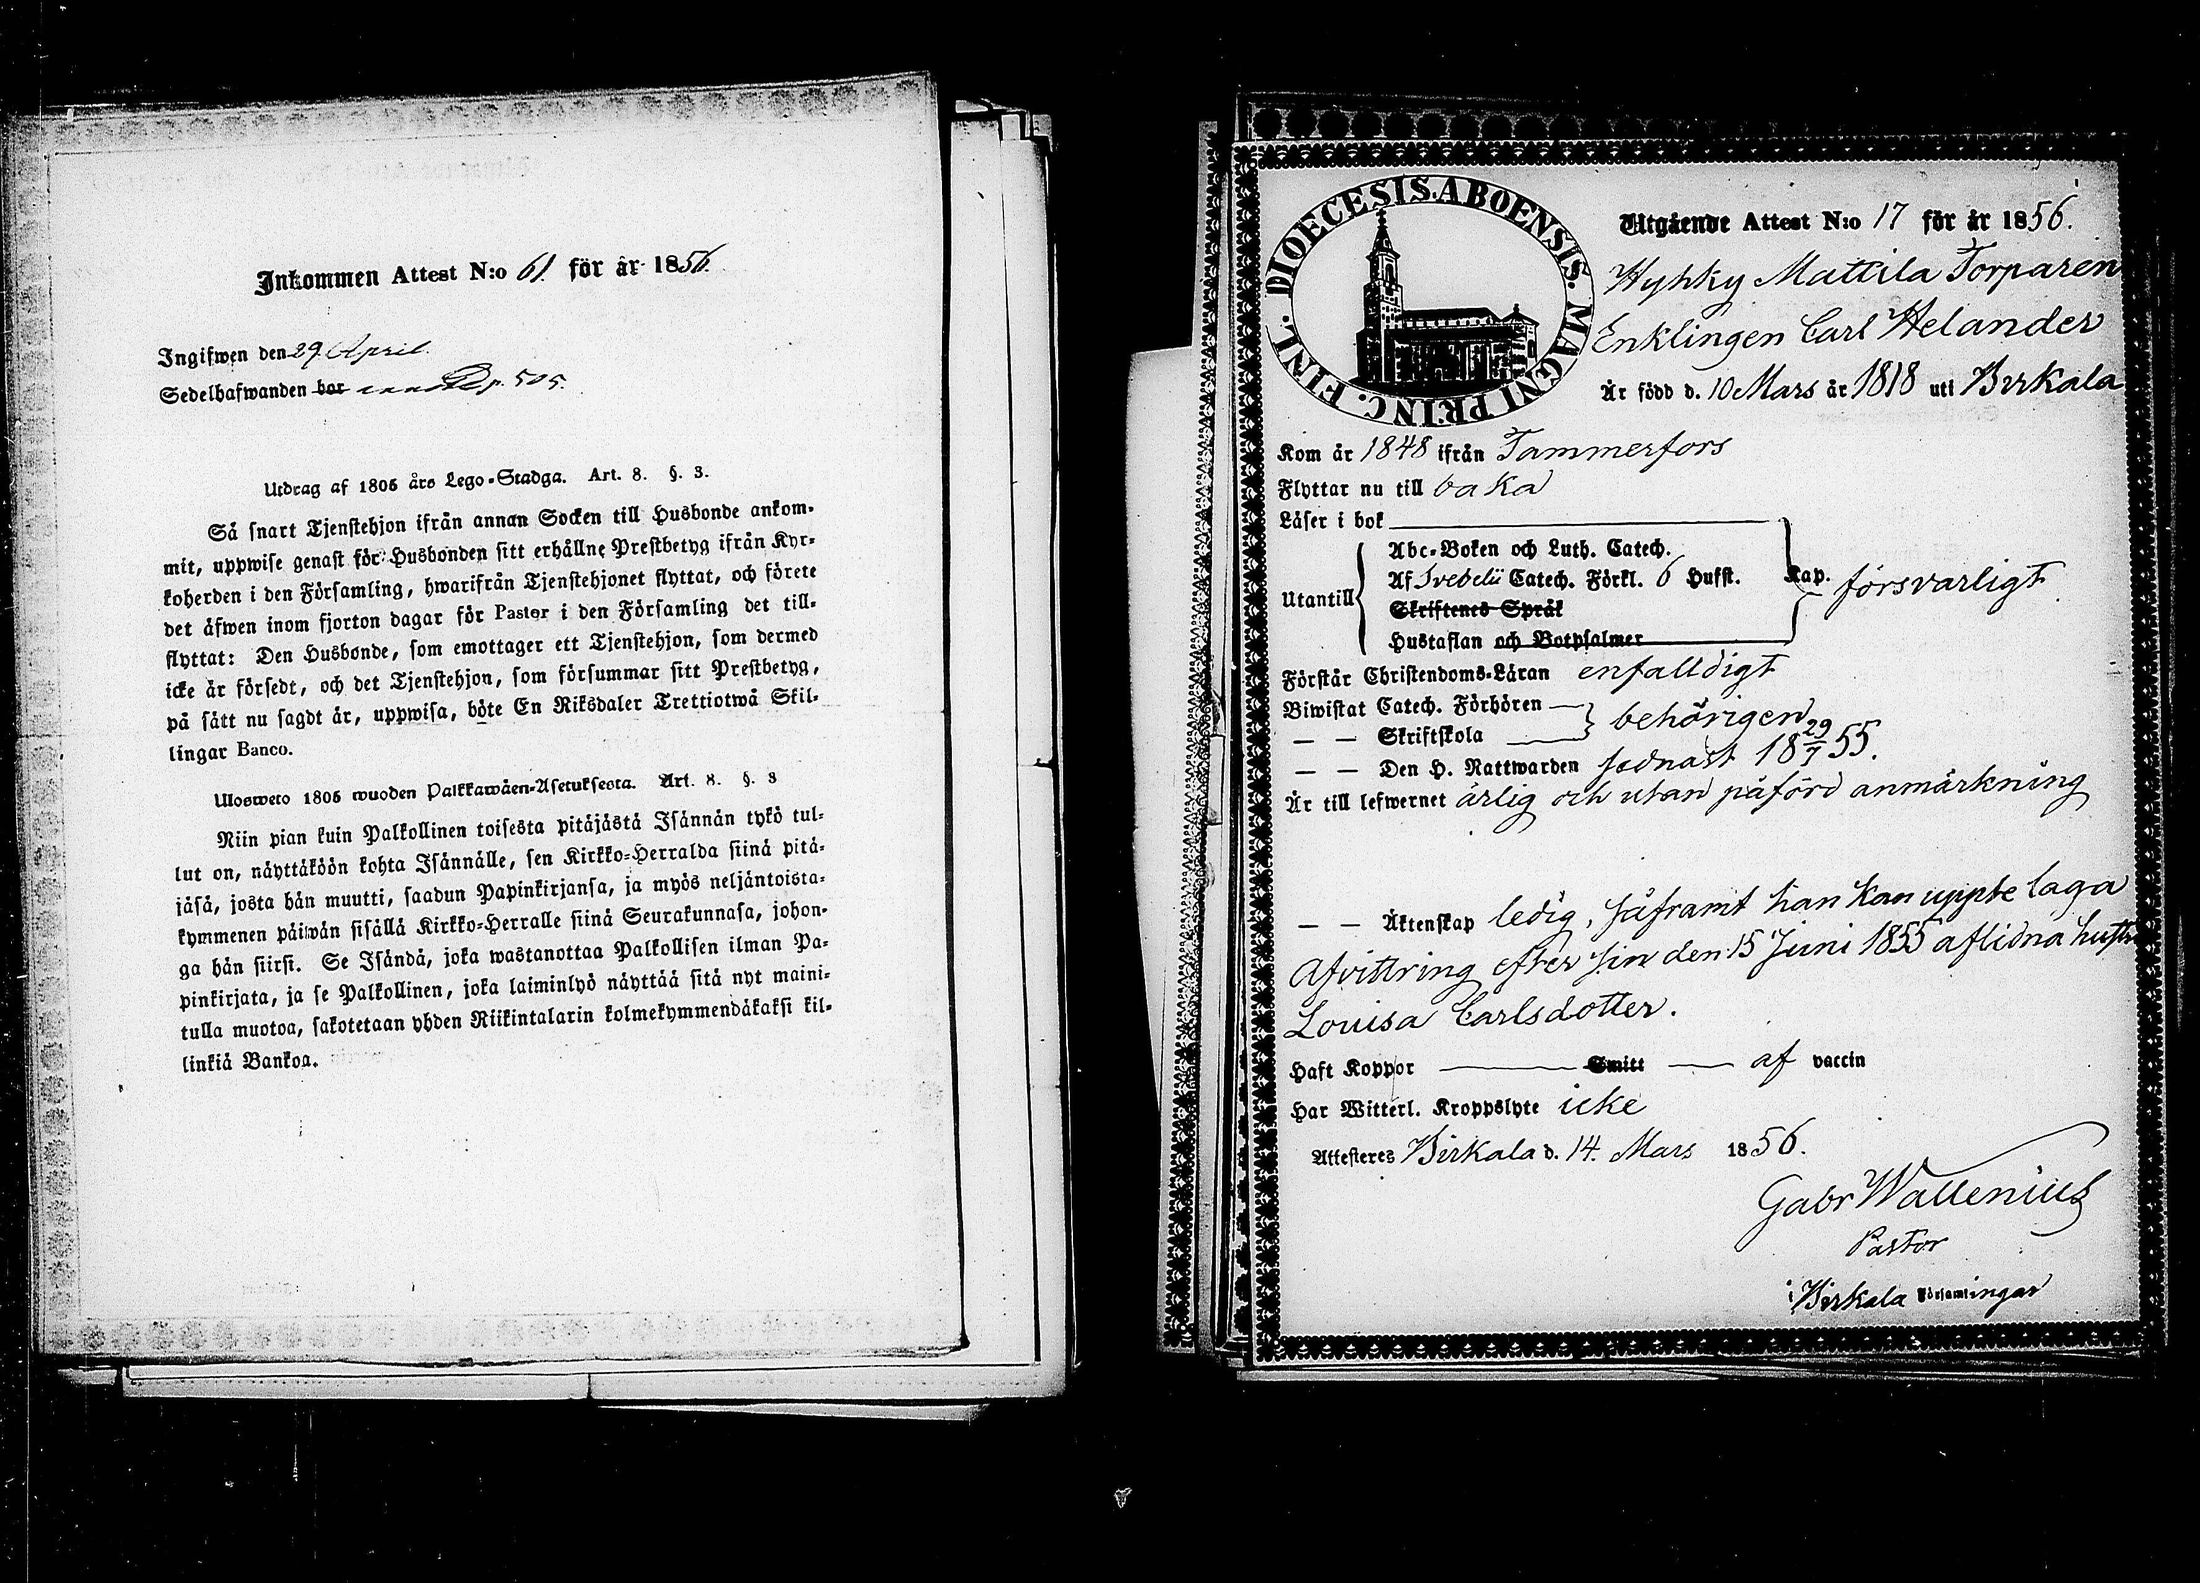 Inkommen Attest N:o 61. för år 1856.
Ingifwen den 29. April.
Sedelhafwanden bor p. 505.
Utdrag af 1805 års Lego-Stadga. Art. 8. §. 3.
Så snart Tjenstehjon ifrån annan Socken till Husbonde ankom-
mit, uppwise genast för Husbonden sitt erhållne Prestbetyg ifrån Kyr-
koherden i den Församling, hwarifrån Tjenstehjonet flyttat, och förete
det äfwen inom fjorton dagar för Pastor i den Församling det till-
flyttat: Den Husbonde, som emottager ett Tjenstehjon, som dermed
icke är försedt, och det Tjenstehjon, som försummar sitt Prestbetyg,
på sätt nu sagdt är, uppwisa, böte En Riksdaler Trettiotwå Skil-
lingar Banco.
Ulosweto 1805 wuoden Palkkawäen-Asetuksesta. Art. 8. §. 3
Niin pian kuin Palkollinen toisesta pitäjästä Isännän tykö tul-
lut on, näyttäköön kohta Isännälle, sen Kirkko-Herralda siinä pitä-
jäsä, josta hän muutti, saadun Papinkirjansa, ja myös neljäntoista-
kymmenen päiwän sisällä Kirkko-Herralle siinä Seurakunnasa, johon-
ga hän siirsi. Se Isändä, joka wastanottaa Palkollisen ilman Pa-
pinkirjata, ja se Palkollinen, joka laiminlyö näyttää sitä nyt maini-
tulla muotoa, sakotetaan yhden Riikintalarin kolmekymmendäkaksi kil-
linkiä Bankoa.
DIOECESIS. ABOENSIS. MAGNI PRINC. FINL.
Utgående Attest N:o 17 för år 1856.
Hyhky Mattila Torparen
Enklingen Carl Helander
Är född d. 10 Mars år 1818 uti Birkala
Kom år 1848 ifrån Tammerfors
Flyttar nu till baka
Läser i bok
Abc-Boken och Luth. Catech.
Af Svebelii Catech. Förkl. 6 Hufst. Kap. försvarligt
Utantill
Skriftenes Språk
Hustaflan och Botpsalmer
Förstår Christendoms-Läran enfalldigt
Biwistat Catech. Förhören
— — Skriftskola behörigen
— — Den H. Nattwarden sednast 18 29/7 55.
Är till lefwernet ärlig och utan påförd anmärkning
— — Äktenskap ledig, såframt han kan uppte laga
Afvittring efter sin den 15 Juni 1855 aflidna hustr
Louisa Carlsdotter.
Haft Koppor — Smitt — af vaccin
Har Witterl. Kroppslyte icke
Attesteres Birkala d. 14. Mars 1856.
Gabr Wallenius
Pastor
i Birkala Församlingar